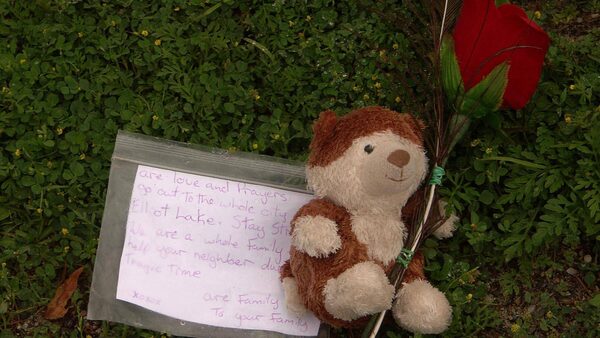 are love and Prayers
go out to the whole city
Elliot Lake. Stay
We are a whole family
help your neighber
Time
xoxox are Family
To your Family